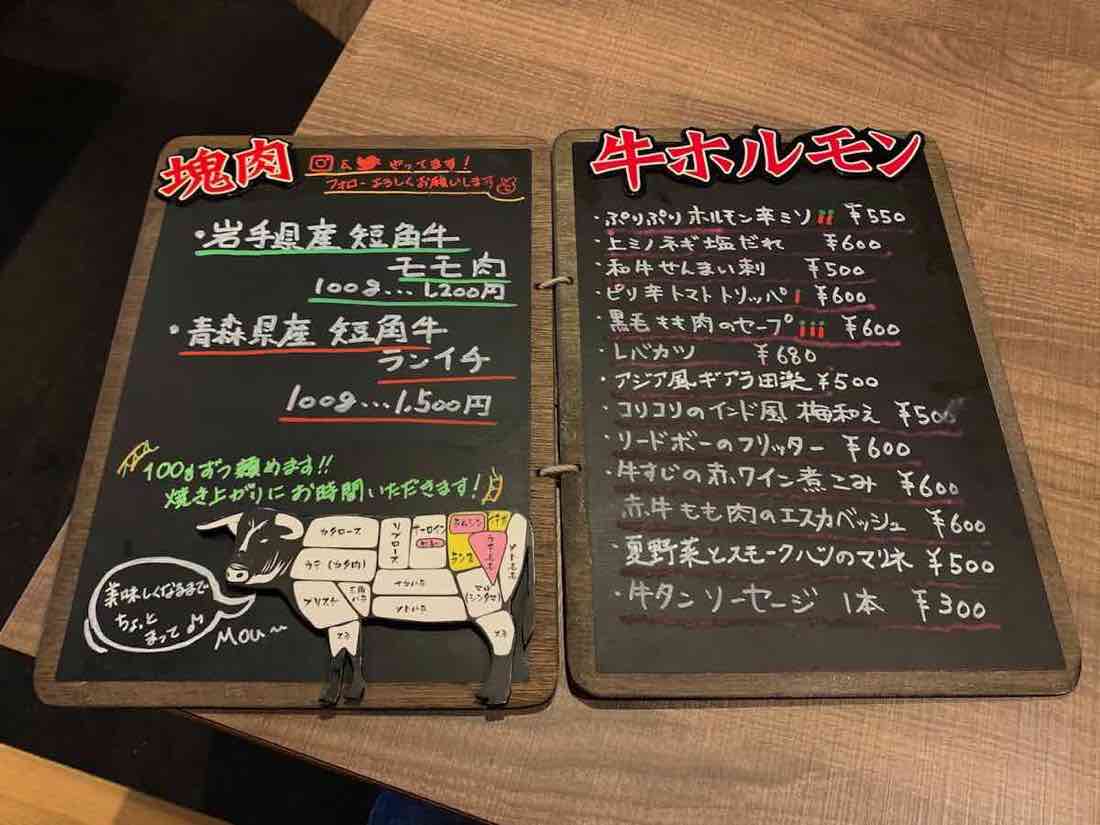 塊肉
& やってます!
フォローよろしくお願いします
・岩手県産 短角牛
モモ肉
100g…1,200円
・青森県産 短角牛
ランイチ
100g…1,500円
100gずつ頼めます!!
焼き上がりにお時間いただきます!
カタロース
リブロース
サーロイン
ヒレ
ランプ
イチボ
ウデ(カタ肉)
ブリスケ
三角バラ
ウチバラ
ソトバラ
マル(シンタマ)
ウチモモ
ソトモモ
スネ
スネ
美味しくなるまで
ちょっと
まって♪
Mou〜
牛ホルモン
・ぷりぷりホルモン辛ミソ ¥550
・上ミノネギ塩だれ ¥600
・和牛せんまい刺 ¥500
・ピリ辛トマトトリッパ ¥600
・黒毛もも肉のセープ ¥600
・レバカツ ¥680
・アジア風ギアラ田楽 ¥500
・コリコリのインド風 梅和え ¥500
・リードボーのフリッター ¥600
・牛すじの赤ワイン煮こみ ¥600
・赤牛もも肉のエスカベッシュ ¥600
・夏野菜とスモークハツのマリネ ¥500
・牛タンソーセージ 1本 ¥300